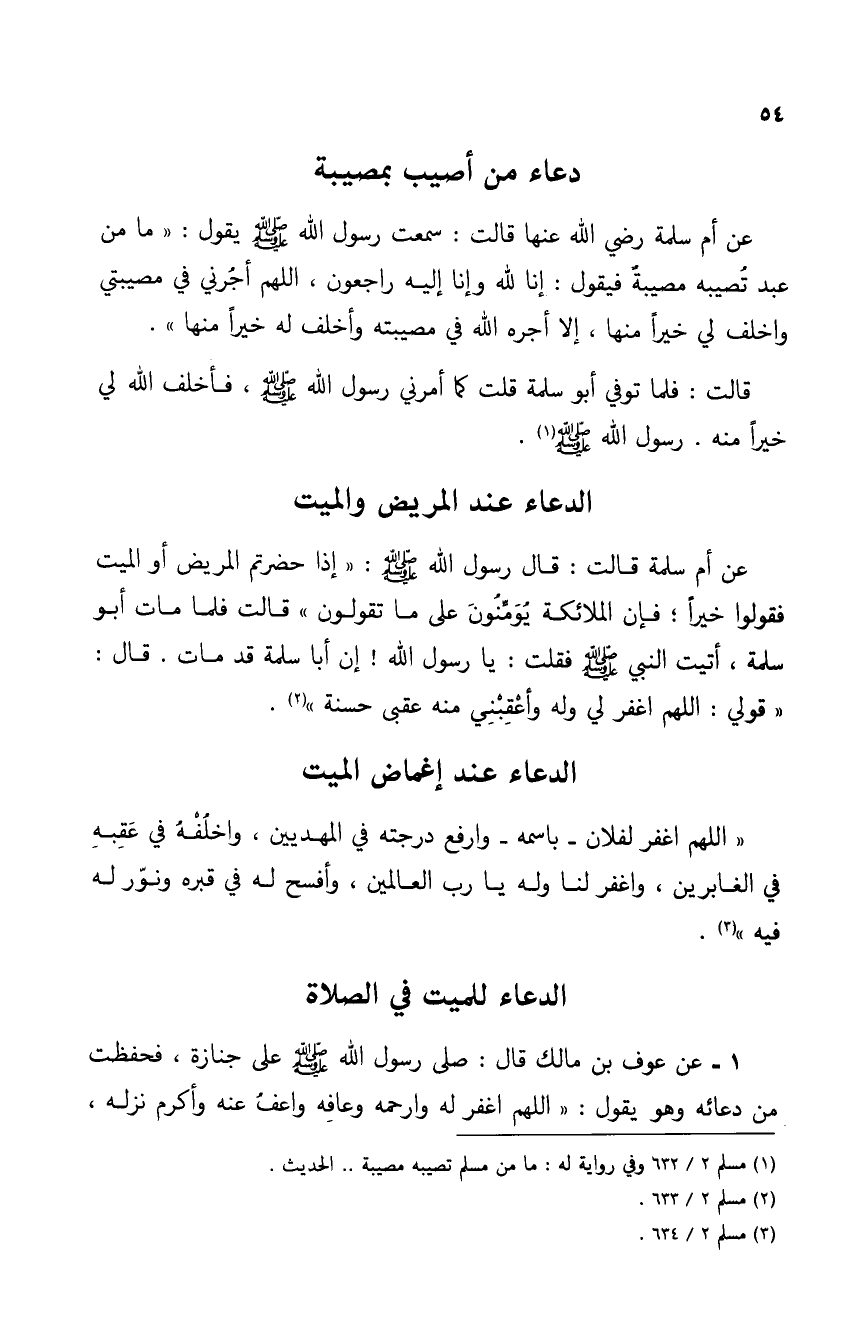 ٥٤
دعاء من أصيب بمصيبة
عن أم سلمة رضي الله عنها قالت : سمعت رسول الله ﷺ يقول : « ما من
عبد تُصيبه مصيبةٌ فيقول : إنا لله وإنا إليه راجعون ، اللهم أجُرني في مصيبتي
واخلف لي خيراً منها ، إلا أجره الله في مصيبته وأخلف له خيراً منها » .
قالت : فلما توفي أبو سلمة قلت كما أمرني رسول الله ﷺ ، فأخلف الله لي
خيراً منه . رسول الله ﷺ(١) .
الدعاء عند المريض والميت
عن أم سلمة قالت : قال رسول الله ﷺ : « إذا حضرتم المريض أو الميت
فقولوا خيراً ؛ فإن الملائكة يُوَمِّنُونَ على ما تقولون » قالت فلما مات أبو
سلمة ، أتيت النبي ﷺ فقلت : يا رسول الله ! إن أبا سلمة قد مات . قال :
« قولي : اللهم اغفر لي وله وأعْقِبْنِي منه عقبى حسنة »(٢) .
الدعاء عند إغماض الميت
« اللهم اغفر لفلان ـ باسمه ـ وارفع درجته في المهديين ، واخلُفْهُ في عَقِبِهِ
في الغابرين ، واغفر لنا وله يا رب العالمين ، وأفسح له في قبره ونوّر له
فيه »(٣) .
الدعاء للميت في الصلاة
١ ـ عن عوف بن مالك قال : صلى رسول الله ﷺ على جنازة ، فحفظت
من دعائه وهو يقول : « اللهم اغفر له وارحمه وعافِه واعفُ عنه وأكرم نزله ،
(١) مسلم ٢ / ٦٣٢ وفي رواية له : ما من مسلم تصيبه مصيبة .. الحديث .
(٢) مسلم ٢ / ٦٣٣ .
(٣) مسلم ٢ / ٦٣٤ .